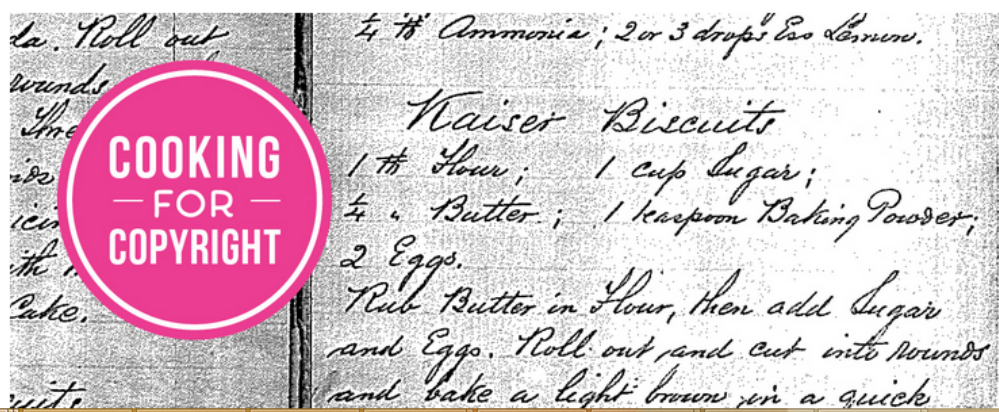 da. Roll out
rounds
Thre
ids
icin
ith
Cake.
uits
COOKING
FOR
COPYRIGHT
1/4 # Ammonia; 2 or 3 drops Ess Lemon.
Kaiser Biscuits
1 # Flour; 1 cup Sugar;
1/4 " Butter; 1 teaspoon Baking Powder;
2 Eggs.
Rub Butter in Flour, then add Sugar
and Eggs. Roll out and cut into rounds
and bake a light brown in a quick